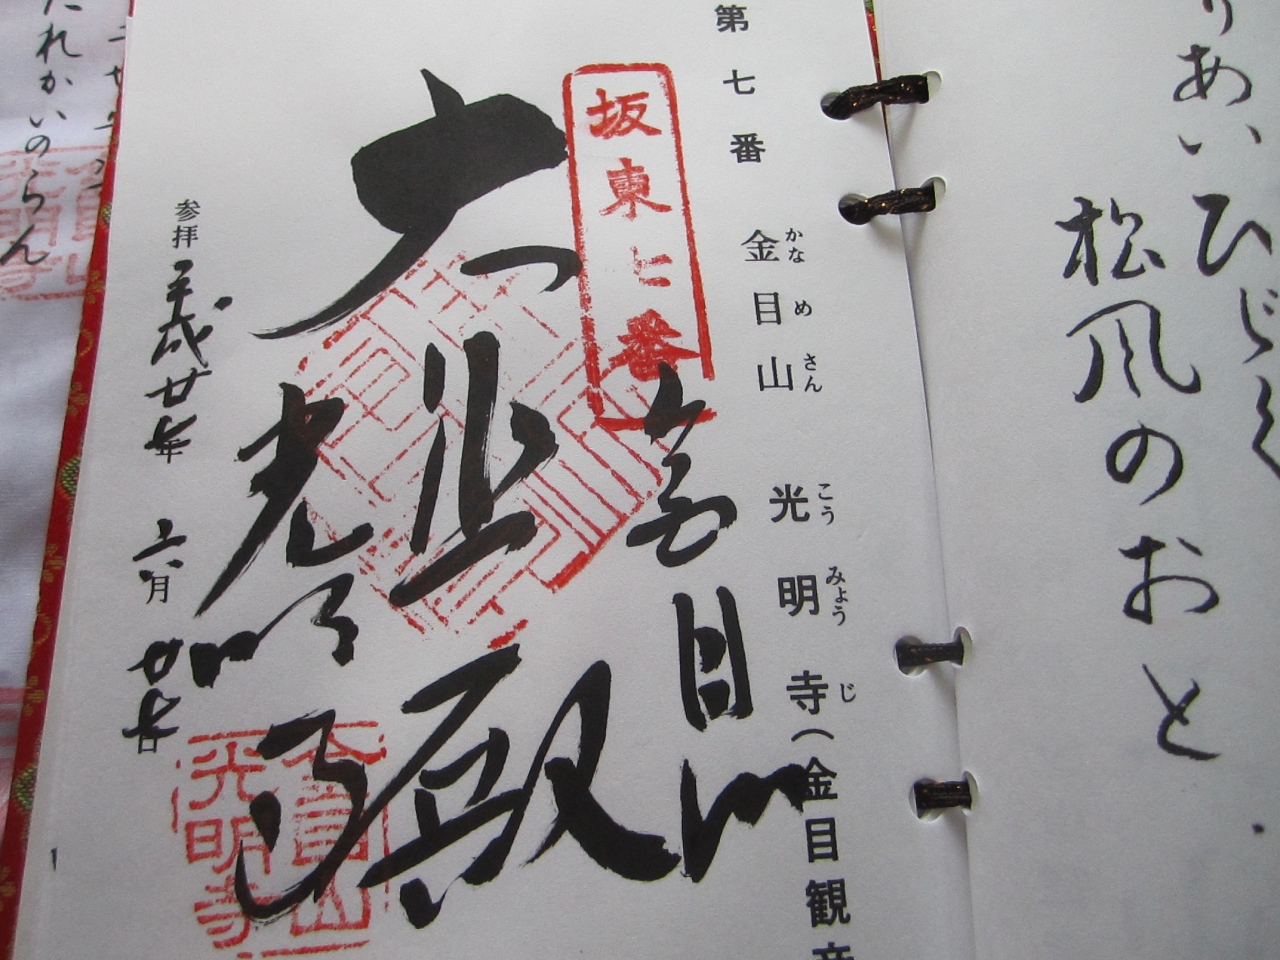 りあい
ひじく
松風のおと
第七番 金目山 光明寺(金目観音
かなめさん こうみょうじ
坂東七番
金目山
大悲殿
光明寺
金目山
光明寺
参拝 平成廿七年 六月 廿七日
たれかいのらん